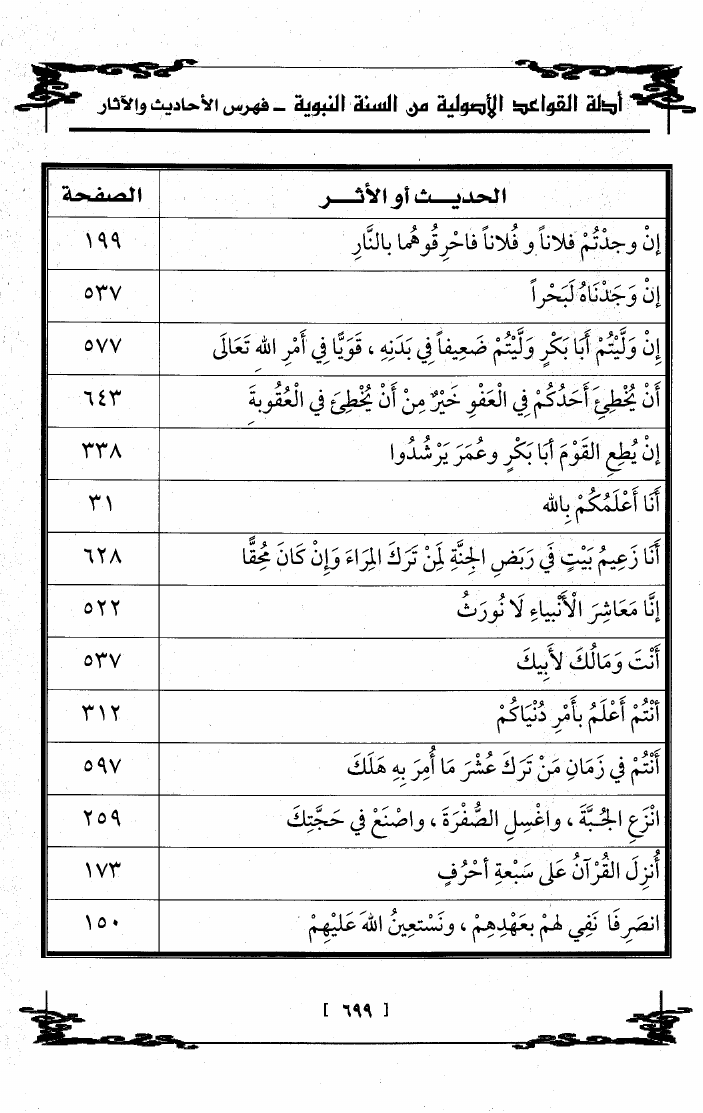 أدلة القواعد الأصولية من السنة النبوية ـ فهرس الأحاديث والآثار
الحديـــث أو الأثـــر الصفحة
إنْ وجدْتُمْ فلاناً و فُلاناً فاحْرِقُوهُما بالنَّارِ ١٩٩
إنْ وَجَدْنَاهُ لَبَحْراً ٥٣٧
إنْ وَلَّيْتُمْ أَبَا بَكْرٍ وَلَّيْتُمْ ضَعِيفاً فِي بَدَنِهِ ، قَوَيًّا فِي أَمْرِ اللهِ تَعَالَى ٥٧٧
أَنْ يُخْطِئَ أَحَدُكُمْ فِي الْعَفْوِ خَيْرٌ مِنْ أَنْ يُخْطِئَ فِي الْعُقُوبةَِ ٦٤٣
إنْ يُطِعِ القَوْمَ أبَا بَكْرٍ وعُمَرَ يَرْشُدُوا ٣٣٨
أَنَا أَعْلَمُكُمْ بِالله ٣١
أَنَا زَعِيمُ بَيْتٍ فَي رَبَضِ الجِنَّةِ لَمِنْ تَرَكَ المِرَاءَ وَإِنْ كَانَ مُحِقًّا ٦٢٨
إنَّا مَعَاشِرَ الْأَنْبياءِ لَا نُورَثُ ٥٢٢
أَنْتَ وَمَالُكَ لأَبِيكَ ٥٣٧
أَنْتُمْ أَعْلَمُ بأَمْرِ دُنْيَاكُمْ ٣١٢
أَنْتُمْ فِي زَمَانِ مَنْ تَرَكَ عُشْرَ مَا أُمِرَ بِهِ هَلَكَ ٥٩٧
انْزَعِ الجُبَّةَ ، واغْسِلِ الصُّفْرَةَ ، واصْنَعْ فِي حَجَّتِكَ ٢٥٩
أُنزِلَ القُرْآنُ عَلَى سَبْعةِ أحْرُفٍ ١٧٣
انصَرِفَا نَفِي لهمْ بعَهْدِهِمْ ، ونَسْتعِينُ اللهَ عَليْهِمْ ١٥٠
[ ٦٩٩ ]